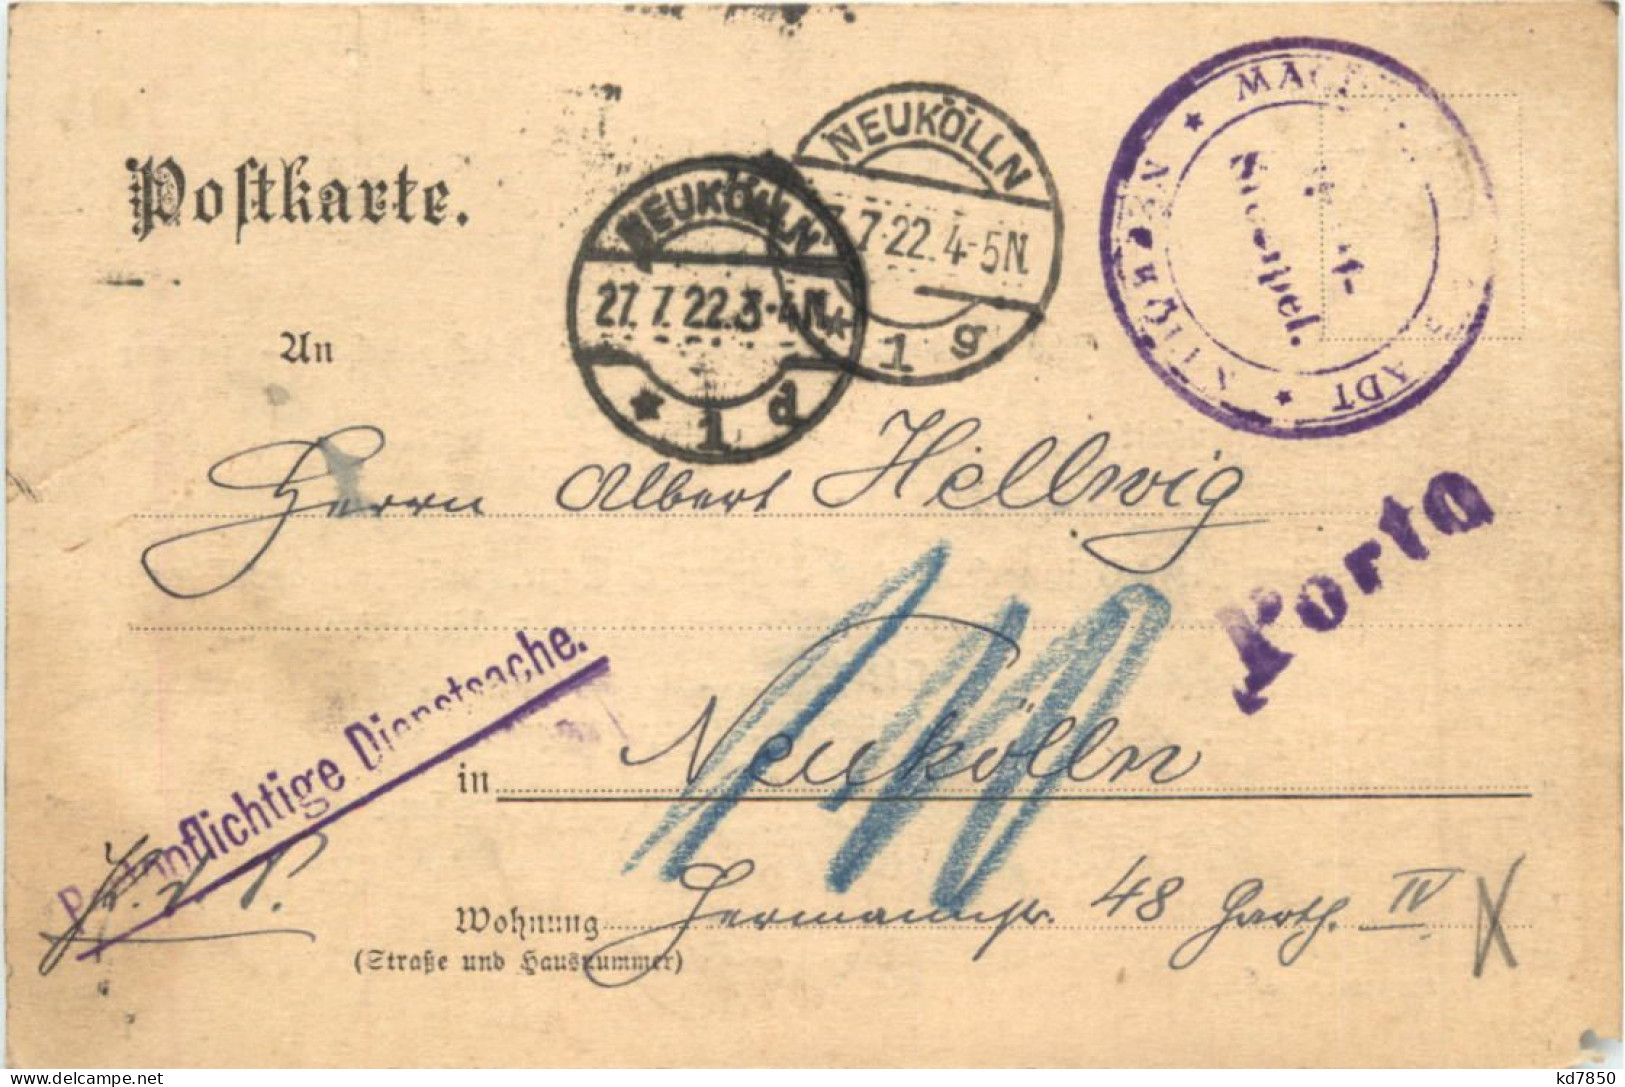 Postkarte.
NEUKÖLLN
7.22.4-5N.
1 g
NEUKÖLLN
27.7.22.3-4N.
* 1 d
Stempel.
An
Herrn Albert Hellwig
Porto
Portopflichtige Dienstsache.
in Neukölln
Wohnung Hermannstr. 48 Garth. IV
(Straße und Hausnummer)
kd7850